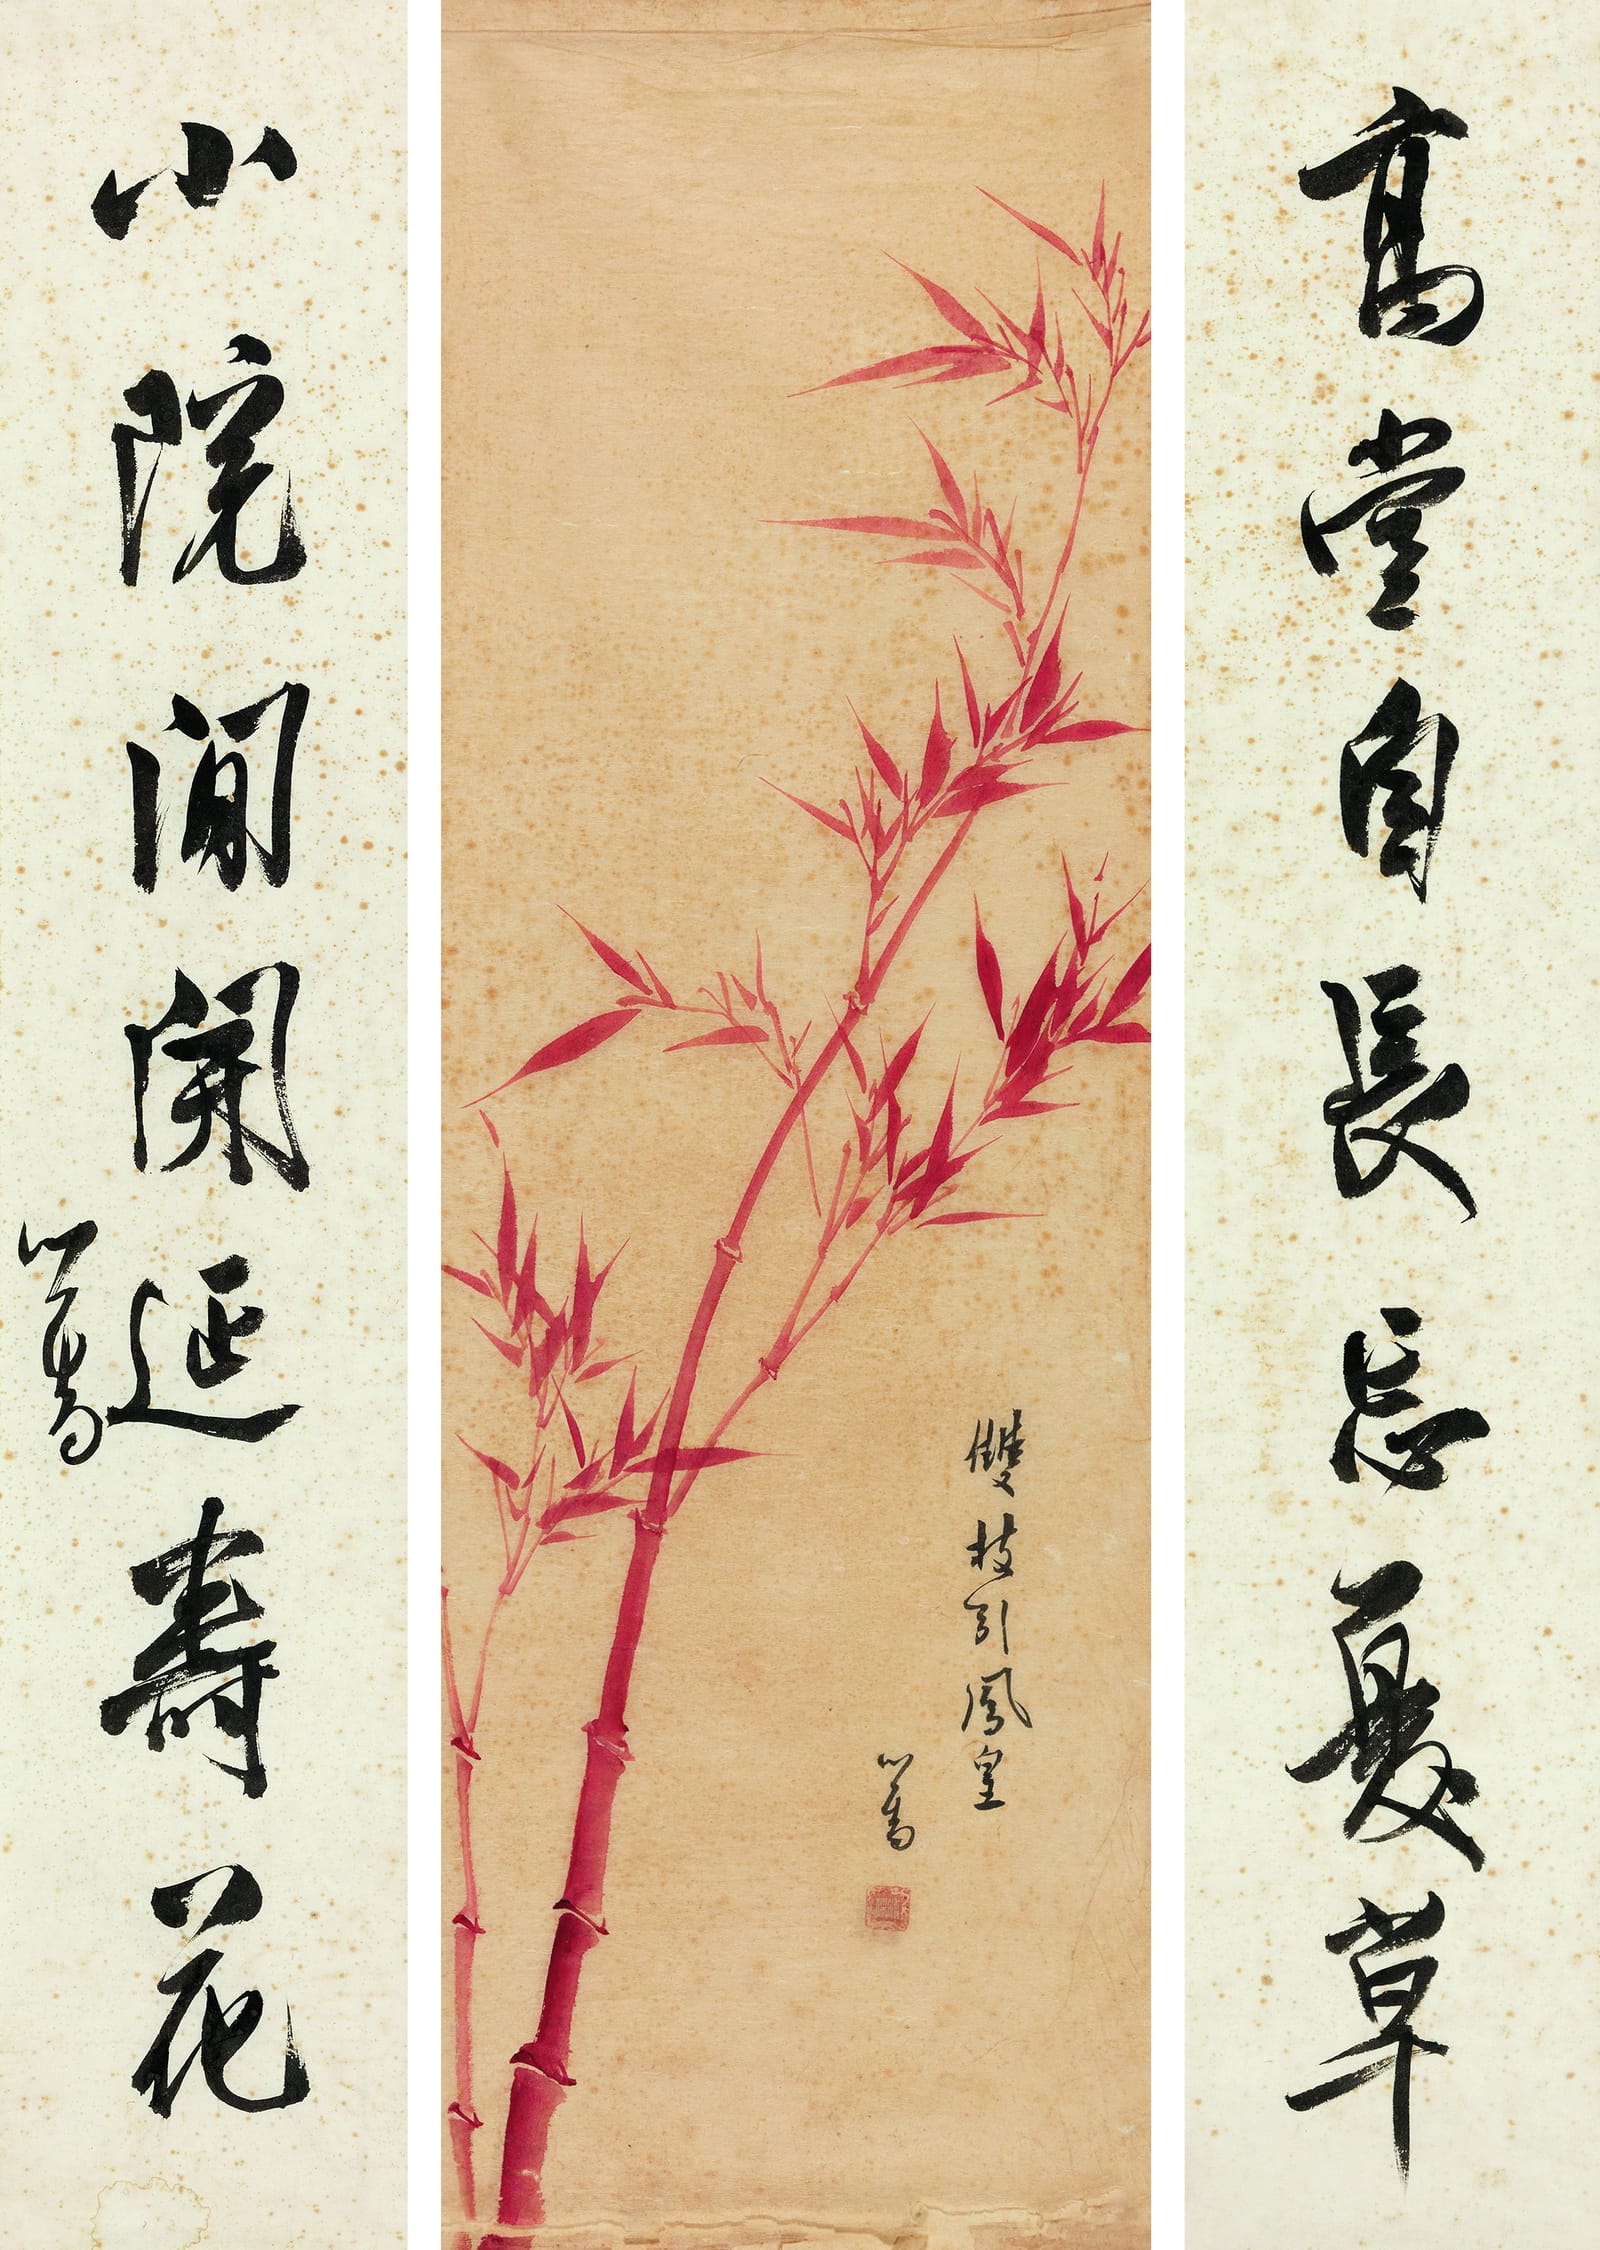 高堂自長忘憂草
雙枝引鳳皇
心畬
小院閒開延壽花
心畬